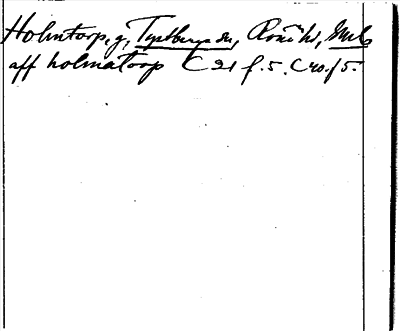 Holmtorp, g, Tystberga sn, Rönö hd, Södm
aff holmatorp C 21 f. 5. C 40. f 5.